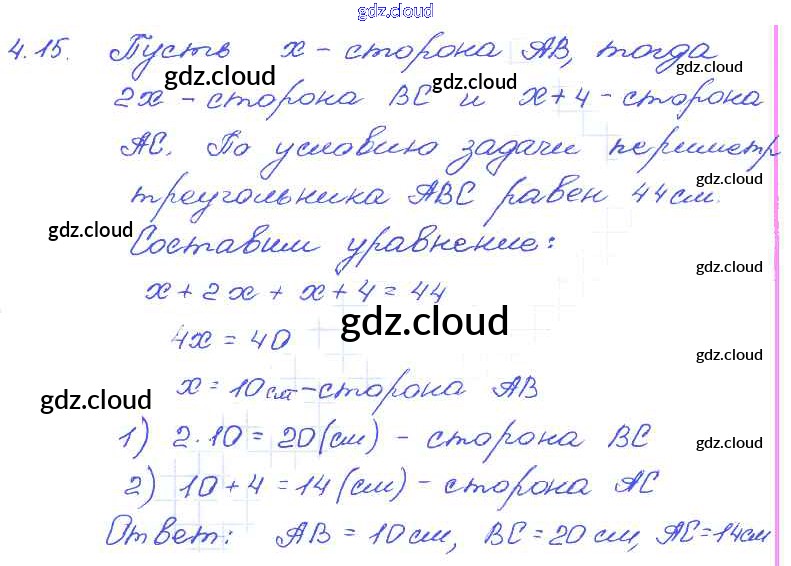 gdz.cloud
4.15. Пусть x - сторона AB, тогда
gdz.cloud gdz.cloud gdz.cloud
2x - сторона BC и x+4 - сторона
AC. По условию задачи периметр
gdz.cloud
треугольника ABC равен 44 см.
gdz.cloud
Составим уравнение:
gdz.cloud
x + 2x + x + 4 = 44
gdz.cloud
4x = 40
gdz.cloud
x = 10 см - сторона AB
gdz.cloud
1) 2·10 = 20 (см) - сторона BC
gdz.cloud
2) 10 + 4 = 14 (см) - сторона AC
Ответ: AB = 10 см, BC = 20 см, AC = 14 см